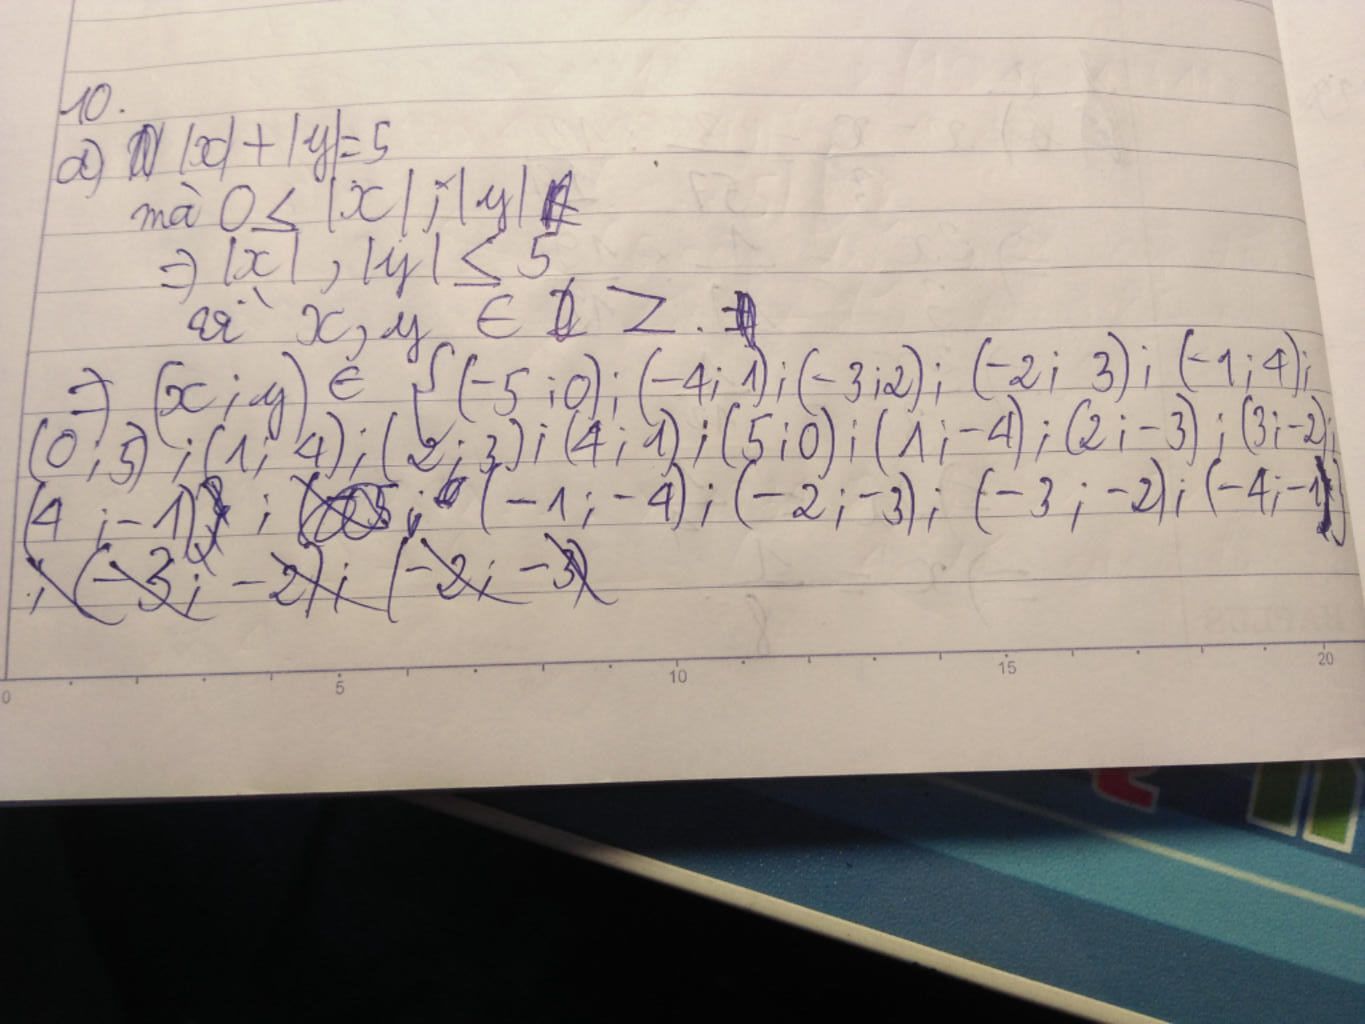 10.
a) |x| + |y| = 5
mà 0 ≤ |x| ; |y|
⇒ |x| , |y| ≤ 5
vì x, y ∈ Z.
⇒ (x ; y) ∈ {(-5 ; 0) ; (-4 ; 1) ; (-3 ; 2) ; (-2 ; 3) ; (-1 ; 4) ;
(0 ; 5) ; (1 ; 4) ; (2 ; 3) ; (4 ; 1) ; (5 ; 0) ; (1 ; -4) ; (2 ; -3) ; (3 ; -2) ;
(4 ; -1) ; (-1 ; -4) ; (-2 ; -3) ; (-3 ; -2) ; (-4 ; -1)}
; (-3 ; -2) ; (-2 ; -3)
0 5 10 15 20